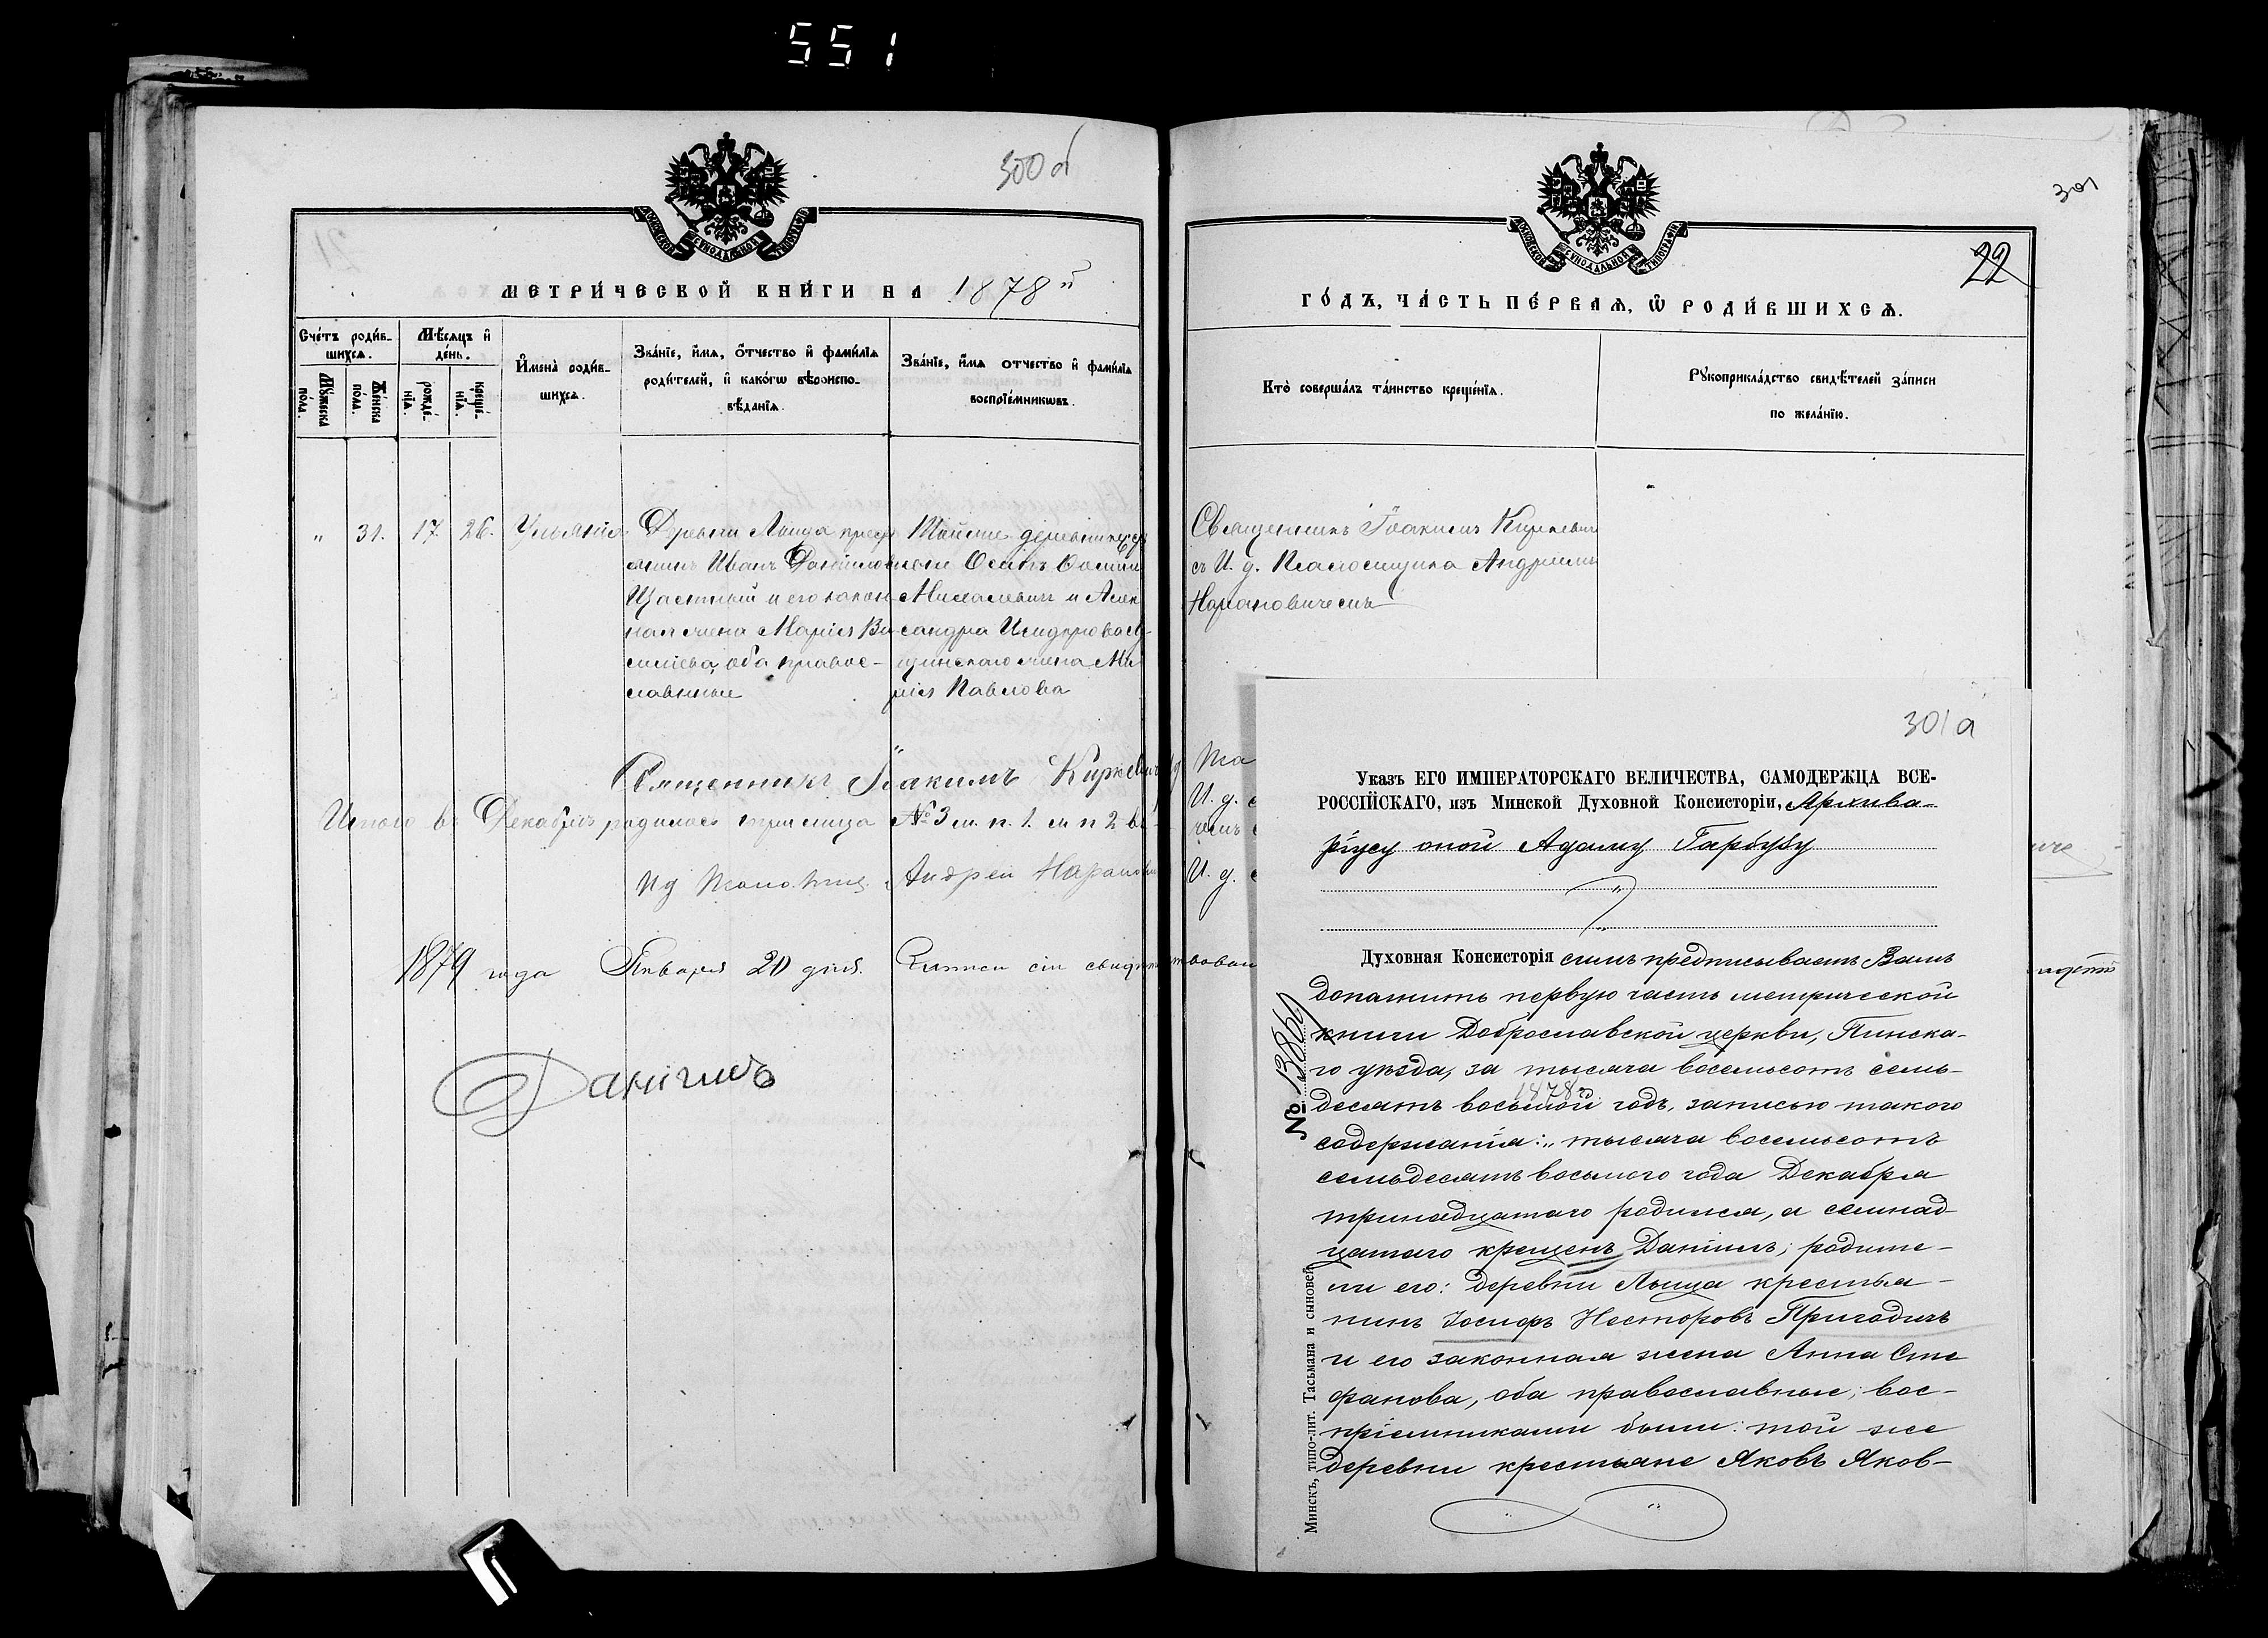 551
300 об
МЕТРИ́ЧЕСКОЙ КНИ́ГИ НА 1878й
Сче́тъ роди́в-
шихсѧ.
Мѣ́сѧцъ и҆
де́нь.
Мꙋ́жеска
по́ла.
Же́нска
по́ла.
рожде́-
нїѧ.
креще́-
нїѧ.
И҆мена̀ роди́в-
шихсѧ.
Зва́нїе, и҆́мѧ, ѻ҆́тчество и҆ фами́лїѧ
роди́телей, и҆ како́гѡ вѣроиспо-
вѣ́данїѧ.
Зва́нїе, и҆́мѧ ѻтчество и҆ фами́лїѧ
воспрїе́мникѡвъ.
„ 31. 17. 26.
Деревни Лыща крестья
янинъ Иванъ
Щасный и его закон-
ная жена Марія Ва-
силіева, оба право-
славные
Тойже деревни
Осипъ
Михалевичъ и Алек
сандра
жена Ма
рія Павлова
Священникъ Іоакимъ Киркевичъ
Итого въ Декабрѣ родилось № 3 м. п. 1. ж п 2
Ид Андрей Наранович
1879 года Января 20 дня.
21
301
22
ГО́ДЪ, ЧА́СТЬ ПЕ́РВАѦ, Ѡ҆ РОДИ́ВШИХСѦ.
Кто̀ соверша́лъ та́инство креще́нїѧ.
Рꙋкоприкла́дство свидѣ́телей за́писи
по жела́нїю.
Священникъ Іоакимъ Киркевичъ
съ И. д. Псаломщика Андреемъ
Нарановичемъ
И. д.
И. д.
301а
Указъ ЕГО ИМПЕРАТОРСКАГО ВЕЛИЧЕСТВА, САМОДЕРЖЦА ВСЕ-
РОССІЙСКАГО, изъ Минской Духовной Консисторіи, Архива-
ріусу оной Адаму Гарбузу
Духовная Консисторія симъ предписываетъ Вамъ
дополнить первую часть метрической
книги Доброславской церкви, Пинска-
го уѣзда, за тысяча восемьсотъ семь-
1878
десятъ восьмой годъ, записью такого
содержанія: „тысяча восемьсотъ
семьдесятъ восьмого года Декабря
тринадцатаго родился, а семнад-
цатаго крещенъ Даніилъ; родите-
ли его: деревни Лыща крестья-
нинъ Іосифъ Несторовъ Пригодичъ
и его законная жена Анна Сте
фанова, оба православные; вос-
пріемниками были: той же
деревни крестьяне Яковъ Яков-
Минскъ, типо-лит. Тасьмана и сыновей